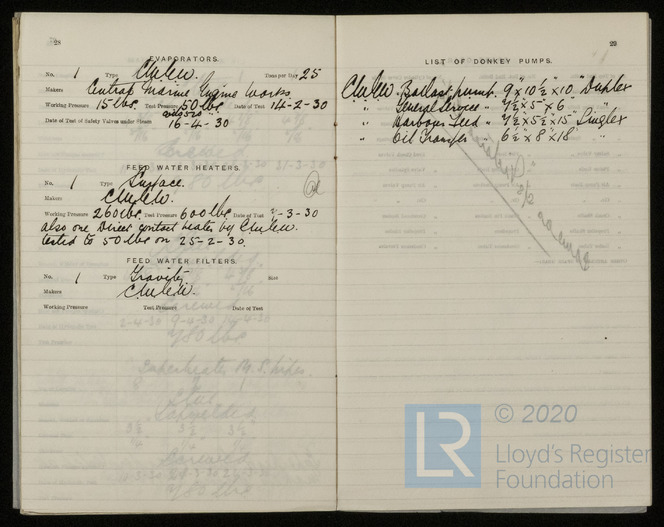 28
EVAPORATORS.
No. 1 Type C.M.E.W. Tons per Day 25
Makers Central Marine Engine Works
Working Pressure 15 lbs. Test Pressure 50 lbs Date of Test 14-2-30
Date of Test of Safety Valves under Steam 16-4-30
FEED WATER HEATERS.
No. 1 Type Surface.
Makers C.M.E.W.
Working Pressure 260 lbs. Test Pressure 600 lbs Date of Test -3-30
also one Direct contact heater by C.M.E.W.
tested to 50 lbs on 25-2-30.
FEED WATER FILTERS.
No. 1 Type Gravity Size
Makers C.M.E.W.
Working Pressure Test Pressure Date of Test
29
LIST OF DONKEY PUMPS.
C.M.E.W. Ballast pump. 9"x 10½"x 10" Duplex
" General Service " 7½"x 5"x 6" "
" Harbour Feed " 7½"x 5½"x 15" Simplex
" Oil Transfer " 6½"x 8"x 18" "
LR © 2020
Lloyd's Register
Foundation